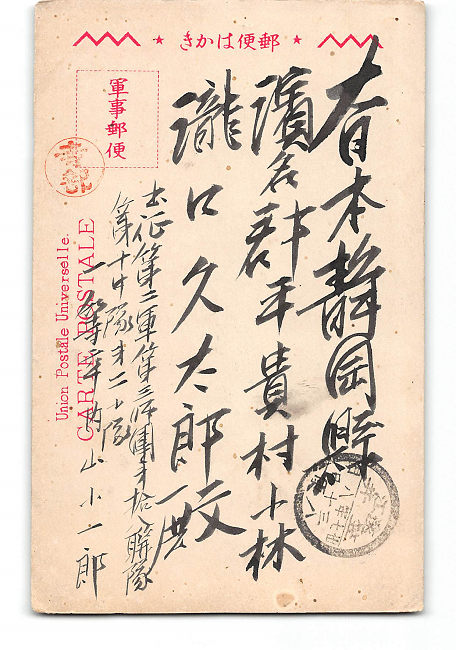 郵便はかき
軍事郵便
大日本静岡縣
濱名郡中平貴村小林
瀧口久太郎殿
出征第二軍第三師團第拾八聯隊
第十中隊第二小隊
一等卒
小一郎
Union Postale Universelle.
CARTE POSTALE